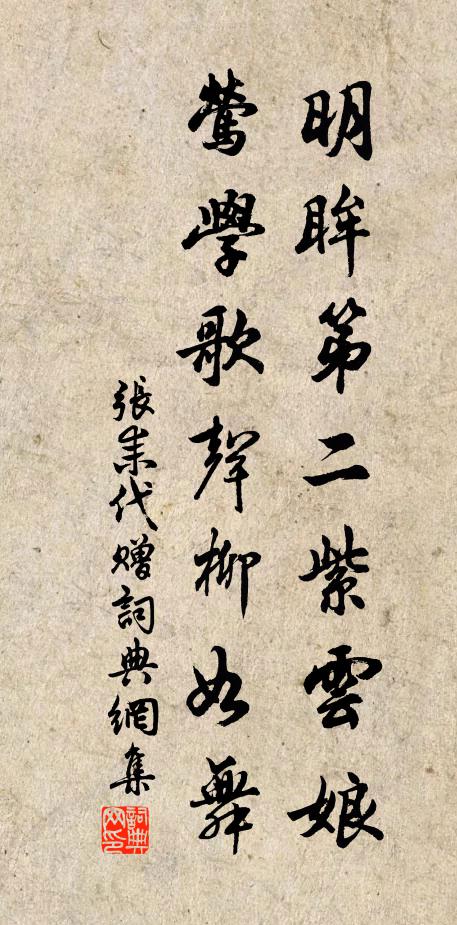 明眸第二紫雲娘
鶯學歌聲柳如舞
張耒代贈詞典網集
詞典网印